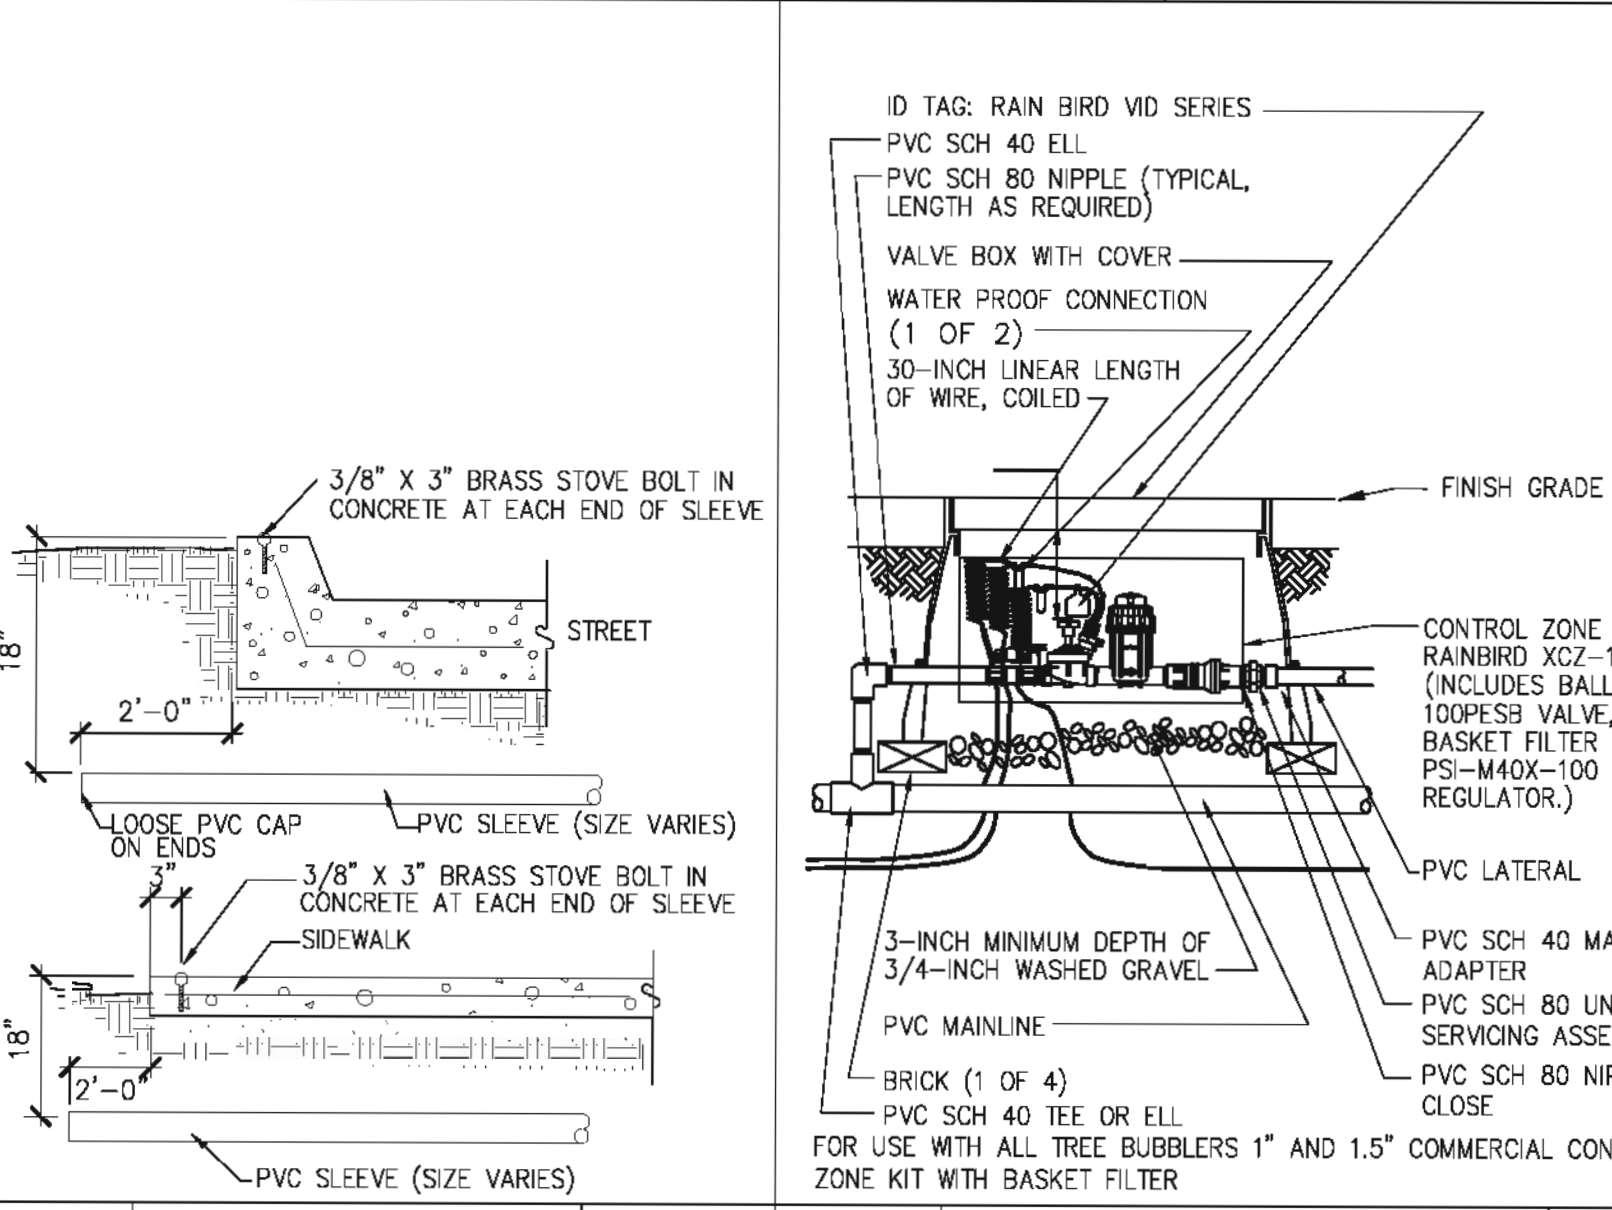 3/8" X 3" BRASS STOVE BOLT IN
CONCRETE AT EACH END OF SLEEVE
18"
STREET
2'-0"
LOOSE PVC CAP
ON ENDS
PVC SLEEVE (SIZE VARIES)
3"
3/8" X 3" BRASS STOVE BOLT IN
CONCRETE AT EACH END OF SLEEVE
SIDEWALK
18"
2'-0"
PVC SLEEVE (SIZE VARIES)
ID TAG: RAIN BIRD VID SERIES
PVC SCH 40 ELL
PVC SCH 80 NIPPLE (TYPICAL,
LENGTH AS REQUIRED)
VALVE BOX WITH COVER
WATER PROOF CONNECTION
(1 OF 2)
30-INCH LINEAR LENGTH
OF WIRE, COILED
FINISH GRADE
CONTROL ZONE
RAINBIRD XCZ-1
(INCLUDES BALL
100PESB VALVE,
BASKET FILTER
PSI-M40X-100
REGULATOR.)
PVC LATERAL
PVC SCH 40 MA
ADAPTER
PVC SCH 80 UN
SERVICING ASSE
PVC SCH 80 NIP
CLOSE
3-INCH MINIMUM DEPTH OF
3/4-INCH WASHED GRAVEL
PVC MAINLINE
BRICK (1 OF 4)
PVC SCH 40 TEE OR ELL
FOR USE WITH ALL TREE BUBBLERS 1" AND 1.5" COMMERCIAL CON
ZONE KIT WITH BASKET FILTER